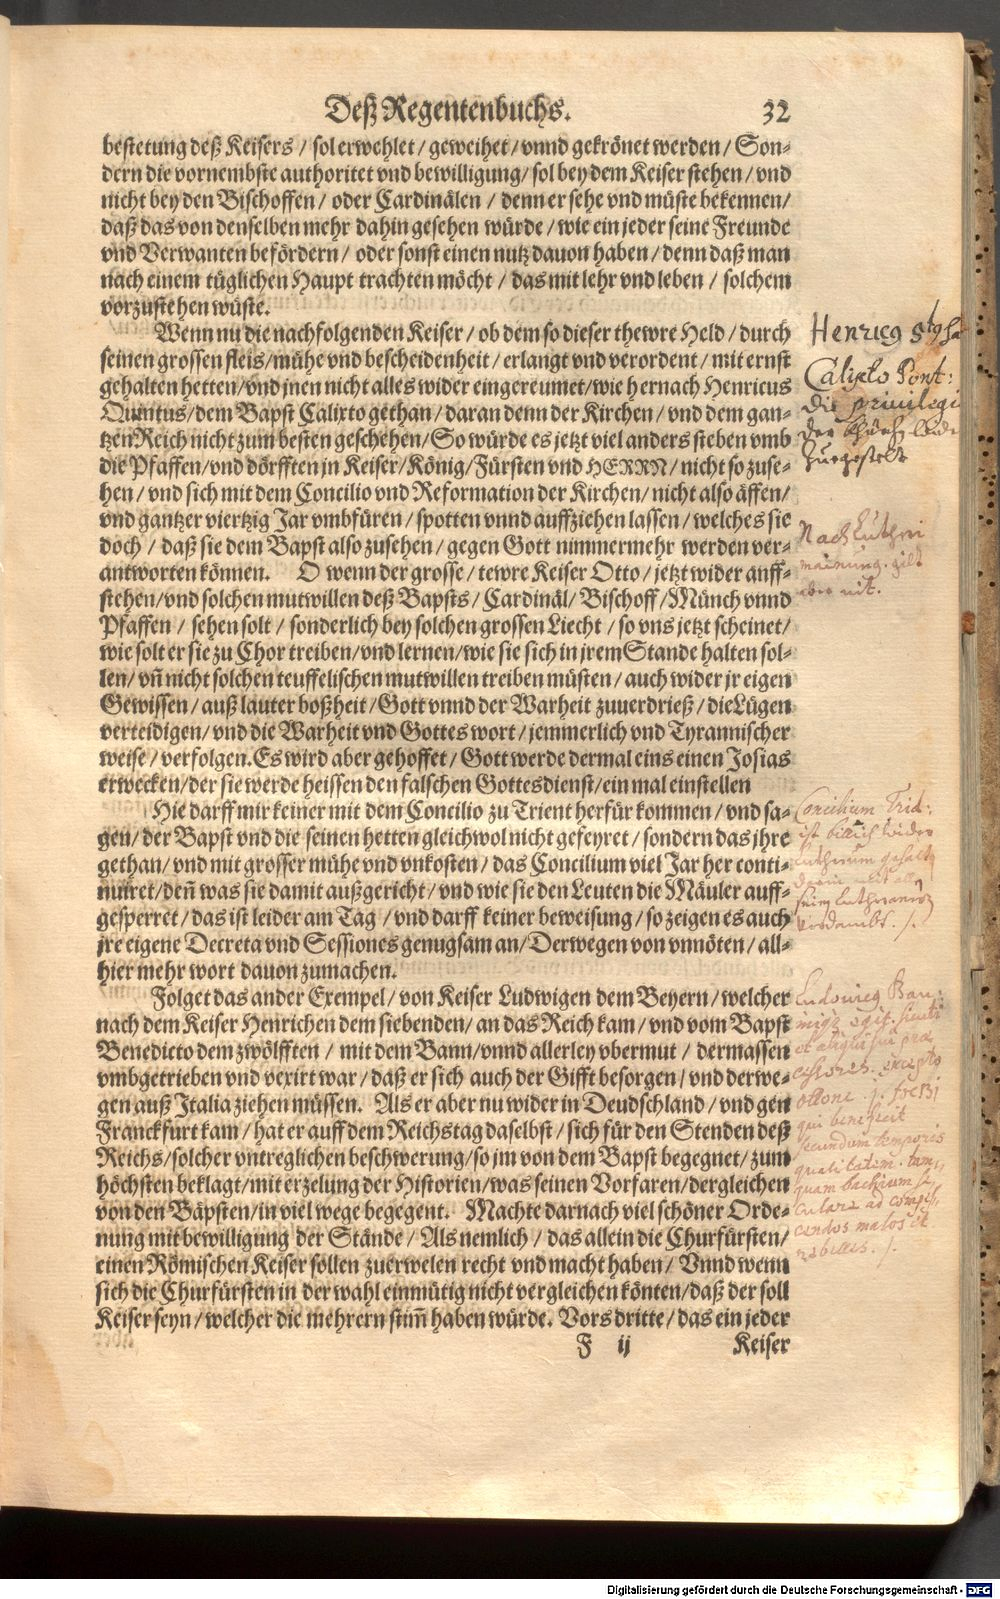 Deß Regentenbuchs. 32
bestetung deß Keisers / sol erwehlet / geweihet / vnnd gekrönet werden / Son-
dern die vornembste authoritet vnd bewilligung / sol bey dem Keiser stehen / vnd
nicht bey den Bischoffen / oder Cardinälen / denn er sehe vnd müste bekennen /
daß das von denselben mehr dahin gesehen würde / wie ein jeder seine Freunde
vnd Verwanten befördern / oder sonst einen nutz dauon haben / denn daß man
nach einem tüglichen Haupt trachten möcht / das mit lehr vnd leben / solchem
vorzustehen wüste.
Wenn nu die nachfolgenden Keiser / ob dem so dieser thewre Held / durch
seinen grossen fleis / mühe vnd bescheidenheit / erlangt vnd verordent / mit ernst
gehalten hetten / vnd jnen nicht alles wider eingereumet / wie hernach Henricus
Quintus / dem Bapst Calixto gethan / daran denn der Kirchen / vnd dem gan-
tzen Reich nicht zum besten geschehen / So würde es jetzt viel anders stehen vmb
die Pfaffen / vnd dörfften jn Keiser / König / Fürsten vnd HERRN / nicht so zuse-
hen / vnd sich mit dem Concilio vnd Reformation der Kirchen / nicht also äffen /
vnd gantzer viertzig Jar vmbfüren / spotten vnnd auffziehen lassen / welches sie
doch / daß sie dem Bapst also zusehen / gegen Gott nimmermehr werden ver-
antworten können. O wenn der grosse / tewre Keiser Otto / jetzt wider auff-
stehen / vnd solchen mutwillen deß Bapsts / Cardinäl / Bischoff / Münch vnnd
Pfaffen / sehen solt / sonderlich bey solchen grossen Liecht / so vns jetzt scheinet /
wie solt er sie zu Chor treiben / vnd lernen / wie sie sich in jrem Stande halten sol-
len / vñ nicht solchen teuffelischen mutwillen treiben müsten / auch wider jr eigen
Gewissen / auß lauter boßheit / Gott vnnd der Warheit zuuerdrieß / die Lügen
verteidigen / vnd die Warheit vnd Gottes wort / jemmerlich vnd Tyrannischer
weise / verfolgen. Es wird aber gehoffet / Gott werde dermal eins einen Josias
erwecken / der sie werde heissen den falschen Gottesdienst / ein mal einstellen
Hie darff mir keiner mit dem Concilio zu Trient herfür kommen / vnd sa-
gen / der Bapst vnd die seinen hetten gleichwol nicht gefeyret / sondern das jhre
gethan / vnd mit grosser mühe vnd vnkosten / das Concilium viel Jar her conti-
nuiret / deñ was sie damit außgericht / vnd wie sie den Leuten die Mäuler auff-
gesperret / das ist leider am Tag / vnd darff keiner beweisung / so zeigen es auch
jre eigene Decreta vnd Sessiones genugsam an / Derwegen von vnnöten / all-
hier mehr wort dauon zumachen.
Folget das ander Exempel / von Keiser Ludwigen dem Beyern / welcher
nach dem Keiser Henrichen dem siebenden / an das Reich kam / vnd vom Bapst
Benedicto dem zwölfften / mit dem Bann / vnnd allerley vbermut / dermassen
vmbgetrieben vnd vexirt war / daß er sich auch der Gifft besorgen / vnd derwe-
gen auß Italia ziehen müssen. Als er aber nu wider in Deudschland / vnd gen
Franckfurt kam / hat er auff dem Reichstag daselbst / sich für den Stenden deß
Reichs / solcher vntreglichen beschwerung / so jm von dem Bapst begegnet / zum
höchsten beklagt / mit erzelung der Historien / was seinen Vorfaren / dergleichen
von den Bäpsten / in viel wege begegent. Machte darnach viel schöner Orde-
nung mit bewilligung der Stände / Als nemlich / das allein die Churfürsten /
einen Römischen Keiser sollen zuerwelen recht vnd macht haben / Vnnd wenn
sich die Churfürsten in der wahl einmütig nicht vergleichen könten / daß der soll
Keiser seyn / welcher die mehrern stim̃ haben würde. Vors dritte / das ein jeder
F ij Keiser
Henricus 5tus
Calixto Pont:
die priuilegi
der
zugestelt
Nach Lutheri
mainung. gilt
aber nit.
Concilium Trid:
ist billich wider
Lutherum
Ludouicus Bau
et aliqui sui
Ottone
qui
secundum temporis
qualitatem. tam
quam
ad
malos et
rebelles.
Digitalisierung gefördert durch die Deutsche Forschungsgemeinschaft - DFG